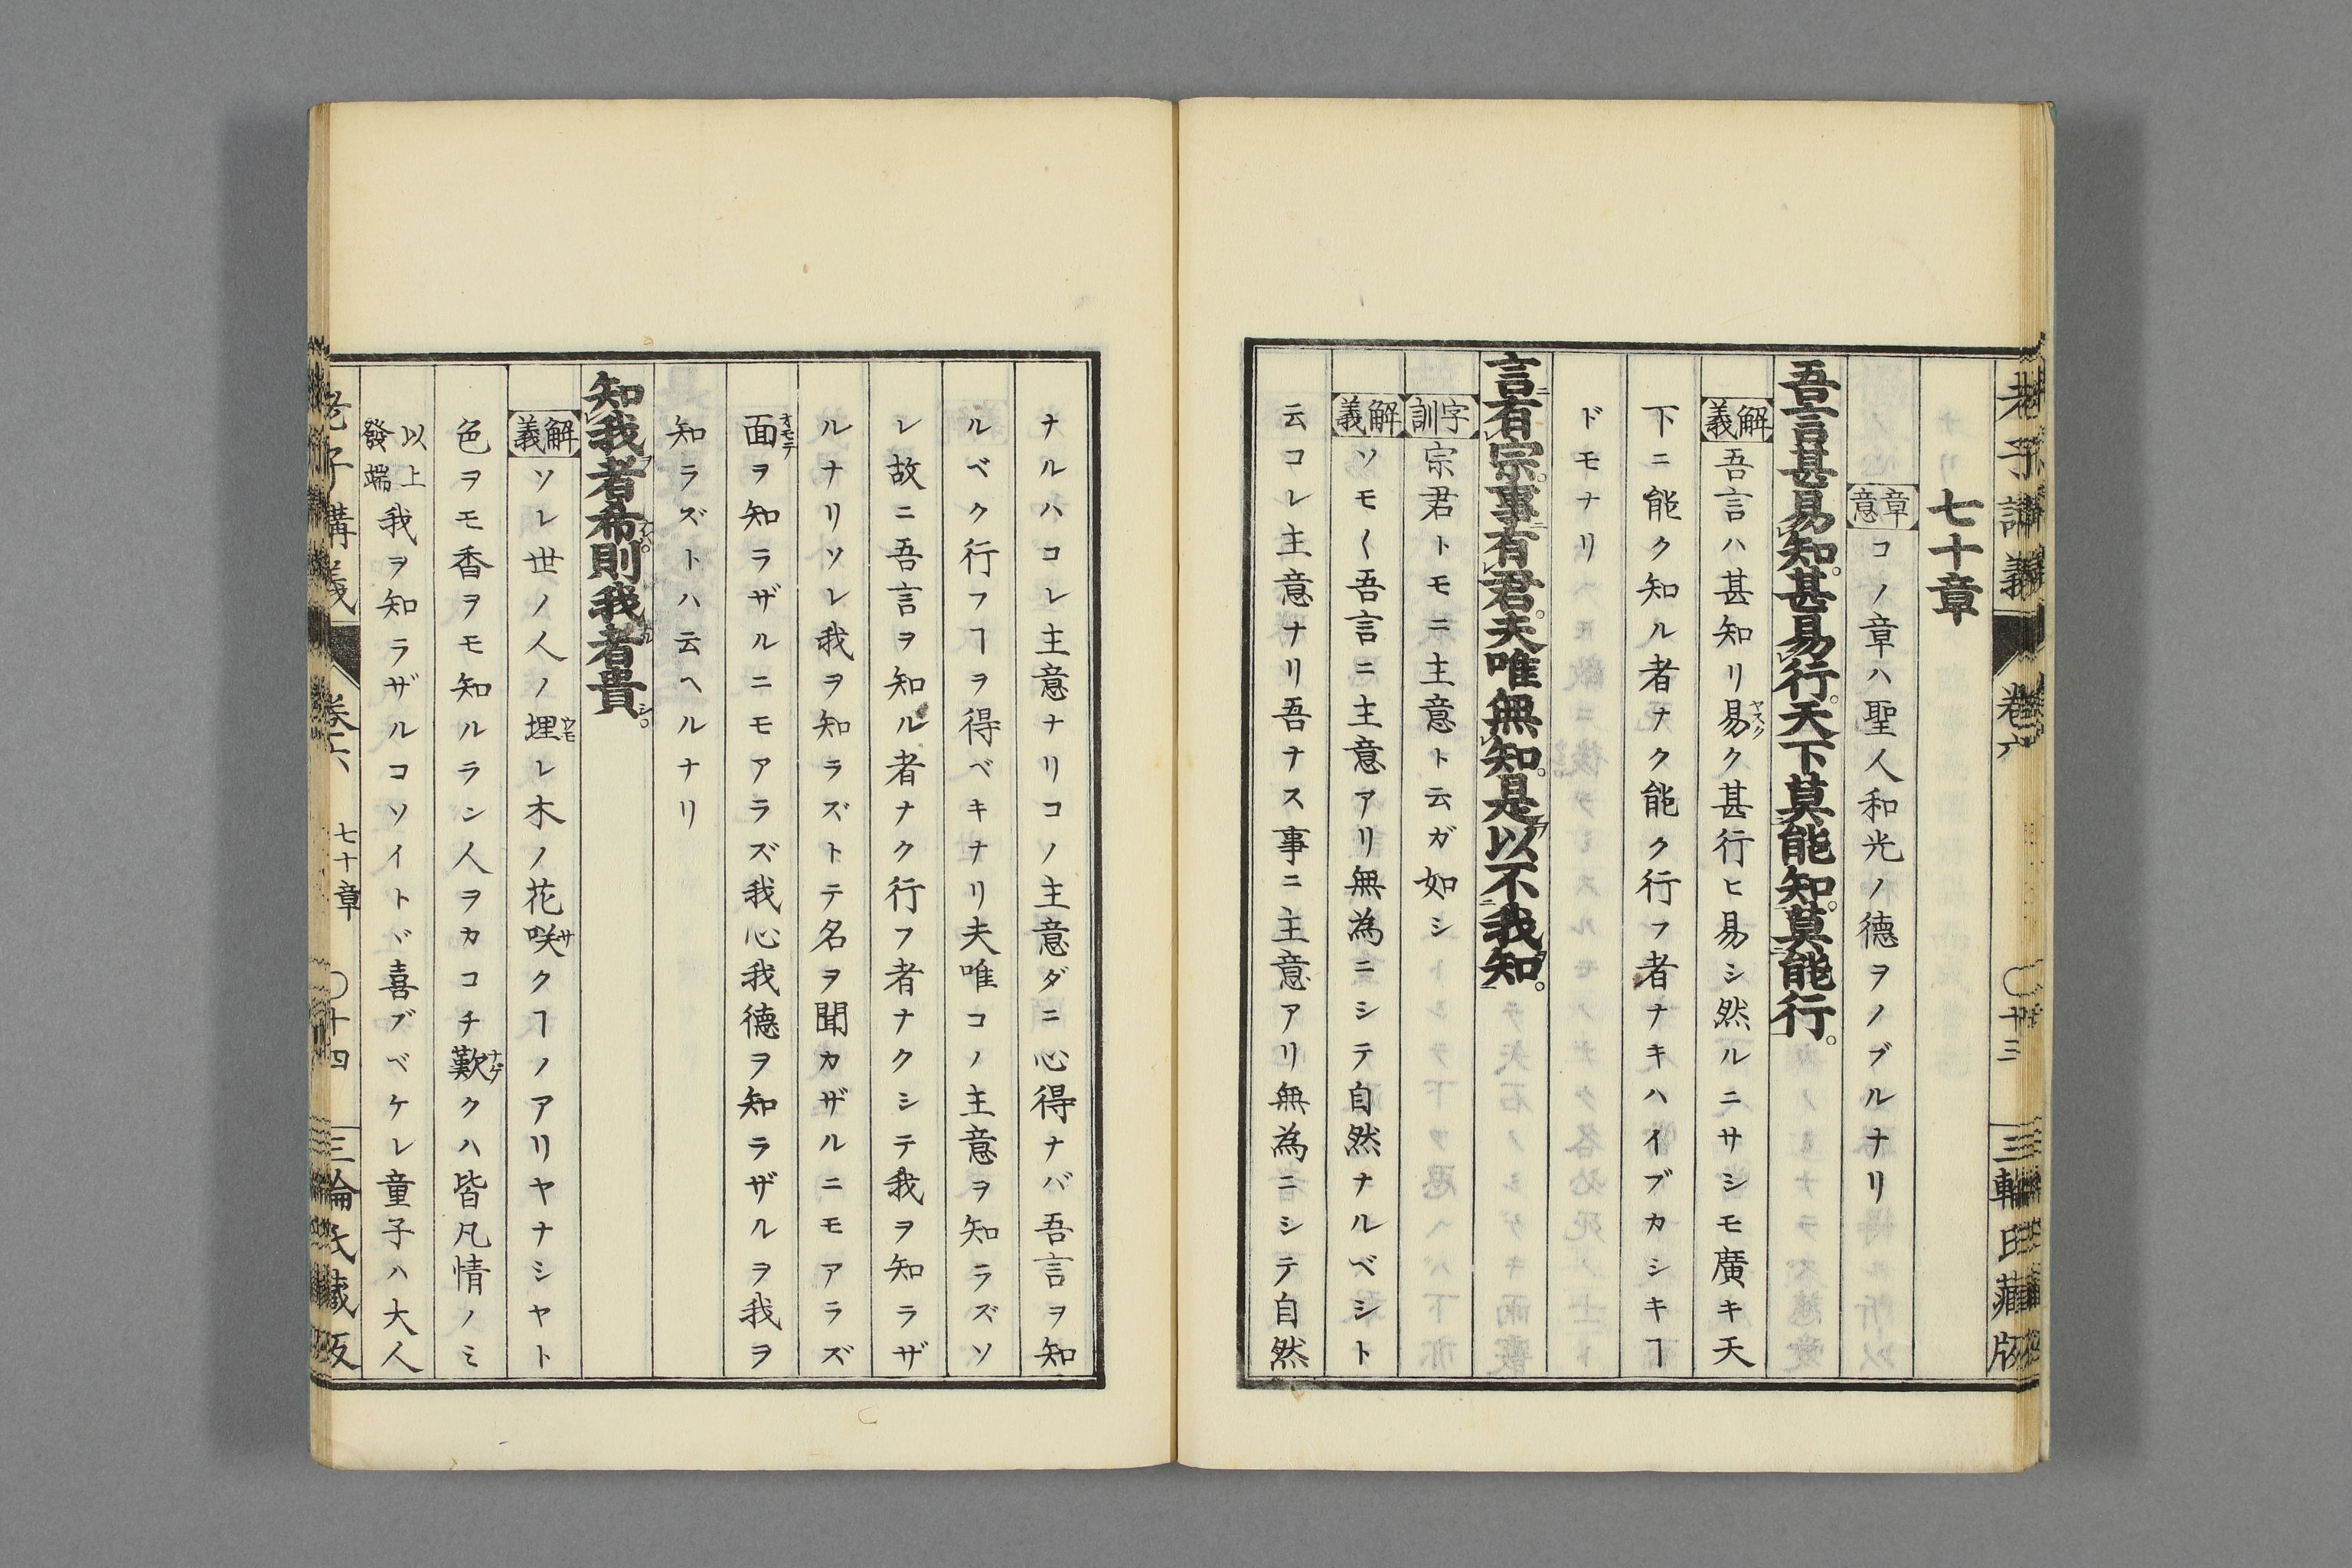 老子講義 卷六 〇十三 三輪氏藏版
七十章
章意 コノ章ハ聖人和光ノ德ヲノブルナリ
吾言甚易知。甚易行。天下莫能知。莫能行。
解義 吾言ハ甚知リ易ク甚行ヒ易シ然ルニサシモ廣キ天
下ニ能ク知ル者ナク能ク行フ者ナキハイブカシキヿ
ドモナリ
言有宗。事有君。夫唯無知。是以不我知。
字訓 宗君トモニ主意ト云ガ如シ
解義 ソモ〱吾言ニ主意アリ無為ニシテ自然ナルベシト
云コレ主意ナリ吾ナス事ニ主意アリ無為ニシテ自然
ナルハコレ主意ナリコノ主意ダニ心得ナバ吾言ヲ知
ルベク行フヿヲ得ベキナリ夫唯コノ主意ヲ知ラズソ
レ故ニ吾言ヲ知ル者ナク行フ者ナクシテ我ヲ知ラザ
ルナリソレ我ヲ知ラズトテ名ヲ聞カザルニモアラズ
面オモテヲ知ラザルニモアラズ我心我德ヲ知ラザルヲ我ヲ
知ラズトハ云ヘルナリ
知我者希。則我者貴。
解義 ソレ世ノ人ノ埋ウモレ木ノ花咲サクヿノアリヤナシヤト
色ヲモ香ヲモ知ルラシ人ヲカコチ歎ナゲクハ皆凡情ノミ
以上發端 我ヲ知ラザルコソイトヾ喜ブベケレ童子ハ大人
老子講義 卷六 七十章 〇十四 三輪氏藏版